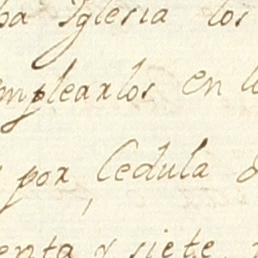 Iglesia los
emplearlos en
por Cedula
enta y siete,